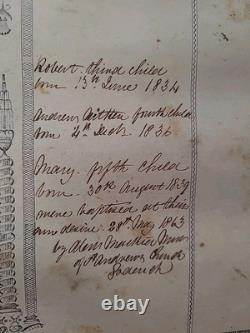 Robert third child
born 13th June 1834
Andrew Aitken fourth child
born 4th Decbr 1836
Mary fifth child
born 30th August 1839
were baptised at their
own desire 28th May 1843
by Alexr Mackid Minr
of St Andrews Church
Goderich
ebay